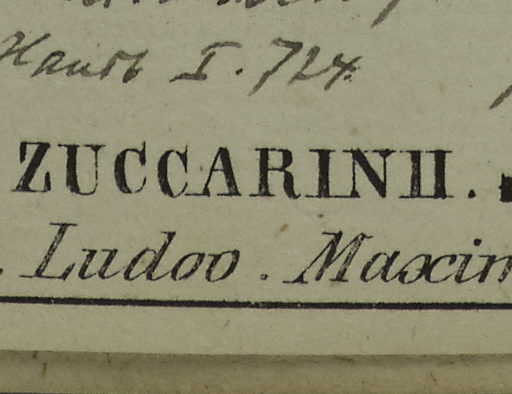 Handb I. 724.
ZUCCARINII.
. Ludov. Maxim